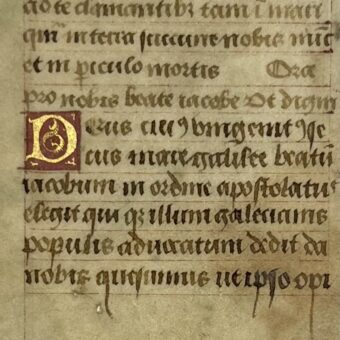 ad te clamantibus tam ĩ mari
quã in terra succurre nobis nũc
et in piculo mortis Ora
pro nobis beate iacobe Ut digni
Deus cuiꝰ vnigenitꝰ se
cus mare galilee beatũ
iacobum in ordine apostolatuˢ
elegit qui illum galecianis
populis aduocatum dedit da
nobis quesumus ut ipso opi